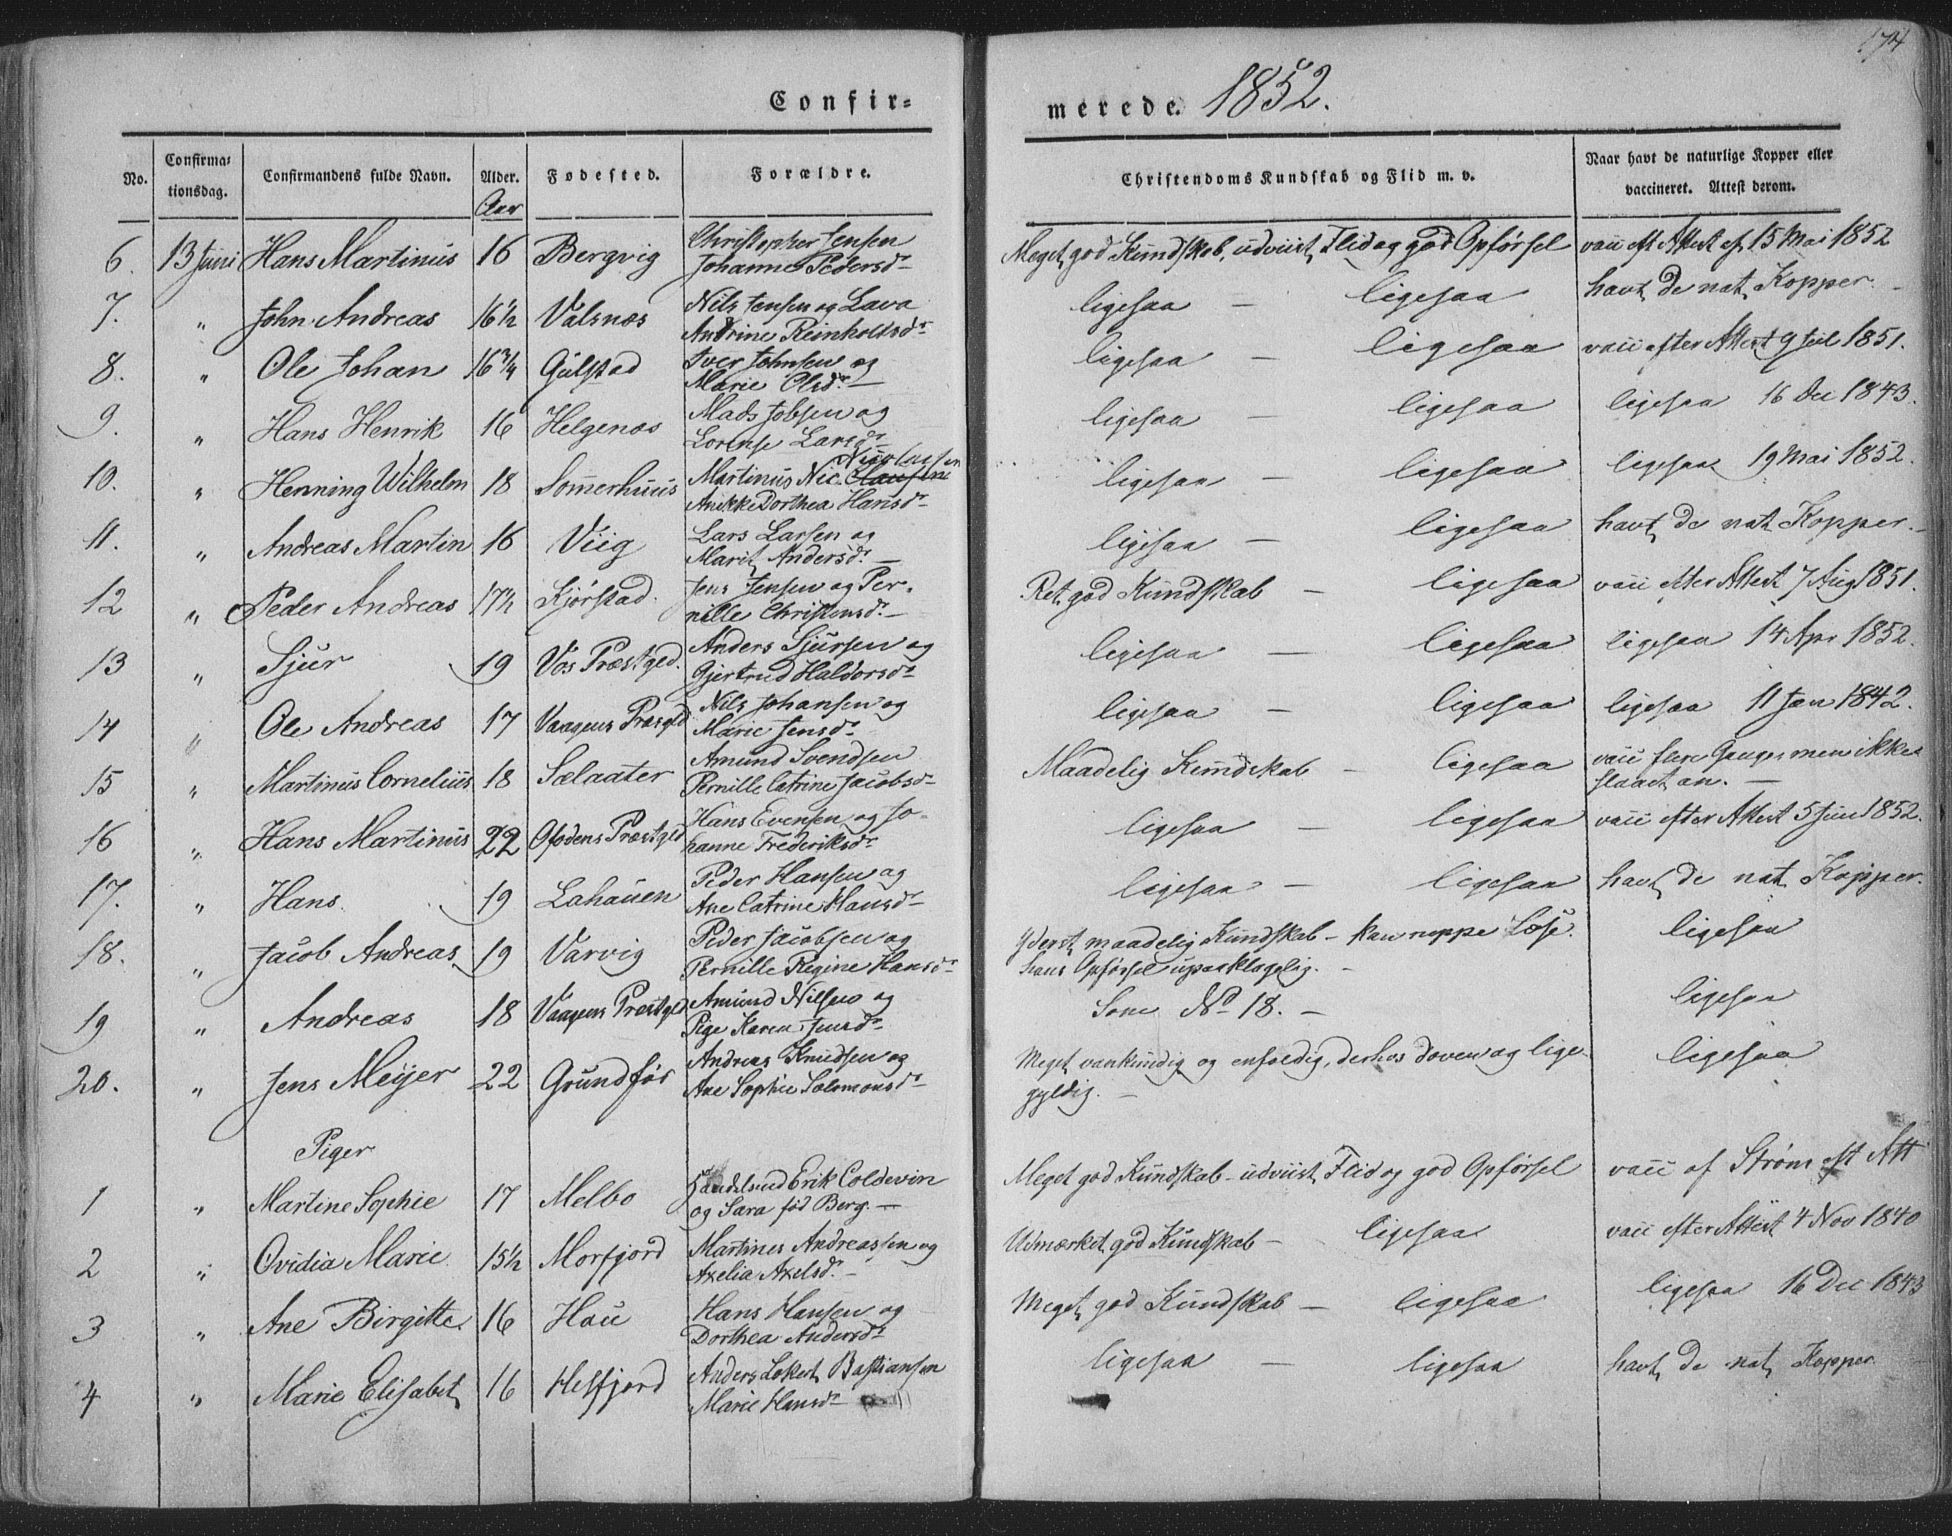 174
Confir=
merede. 1852.
No. Confirma=tionsdag. Confirmandens fulde Navn. Alder. Fødested. Forældre. Christendoms Kundskab og Flid m. v. Naar havt de naturlige Kopper eller vaccineret. Attest derom.
Aar
6. 13 Juni Hans Martinus 16 Bergvig Christopher Jensen Johanne Pedersdr Meget god Kundskab, udviist Flid og god Opførsel vacc eft Attest af 15 Mai 1852
7. " John Andreas 16½ Valsnæs Nils Jensen og Lava Andrine Reinholtsdr ligesaa — ligesaa havt de nat Kopper. —
8. " Ole Johan 16¾ Gulstad Iver Johnsen og Marie Olsdr — ligesaa — ligesaa vacc efter Attest 9 1851.
9. " Hans Henrik 16 Helgenæs Mads Jobsen og Lorense Larsdr ligesaa — ligesaa ligesaa 16 Dec 1843.
10. " Henning Wilhelm 18 Sommerhuus Martinus Nic. Clausen Nicolaisen Anikke Dorthea Hansdr ligesaa — ligesaa ligesaa 19 Mai 1852.
11. " Andreas Martin 16 Viig Lars Larsen og Marit Andersdr — ligesaa — ligesaa havt de nat Kopper. —
12 " Peder Andreas 17½ Kjørstad. Jens Jensen og Pernille Christensdr — Ret god Kundskab — ligesaa vacc efter Attest 7 Aug 1851.
13 " Sjur 19 Vos Præstgld. Anders Sjursen og Gjertrud Haldorsdr ligesaa — ligesaa ligesaa 14 Apr 1852.
14 " Ole Andreas 17 Vaagens Præsgld Nils Johansen og Marie Jensdr ligesaa — ligesaa ligesaa 11 Jan 1842.
15 " Martinus Cornelius 18 Sælaater Amund Svendsen Pernille Catrine Jacobsdr Maadelig Kundskab — ligesaa vacc flere Gange men ikke slaaet an. —
16 " Hans Martinus 22 Ofodens Præstgld Hans Evensen og Johanne Frederiksdr ligesaa — ligesaa vacc efter Attest 5 Juni 1852.
17. " Hans. 19 Lahauen Peder Hansen og Ane Catrine Hansdr ligesaa — ligesaa havt de nat Kopper.
18. " Jacob Andreas 19 Varvig Peder Jacobsen og Pernille Regine Hansdr Yderst maadelig Kundskab — kan neppe læse. hans Opførsel upaaklagelig. — ligesaa
19 " Andreas 18 Vaagens Præstgld Amund Nilsen og Pige Karen Jensdr Som No 18. — ligesaa
20. " Jens Meijer 22 Grundfør Andreas Knudsen og Ane Sophie Salomonsdr Meget vankundig og enfoldig, derhos doven og ligegyldig. — ligesaa
Piger
1 " Martine Sophie 17 Melbo Handelsmd Erik Coldevin og Sara fød Berg. — Meget god Kundskab — udviist Flid og god Opførsel vacc af Strøm eft Att
2 " Ovidia Marie 15½ Morfjord Martines Andreassen og Axelia Axelsdr — Udmærket god Kundskab — ligesaa vacc efter Attest 4 Nov 1840
3 " Ane Birgitte 16 Hou Hans Hansen og Dorthea Andersdr Meget god Kundskab — ligesaa ligesaa 16 Dec 1843
4 " Marie Elisabet 16 Helfjord Anders Lokert Bastiansen Marie Hansdr ligesaa — ligesaa havt de nat Kopper.